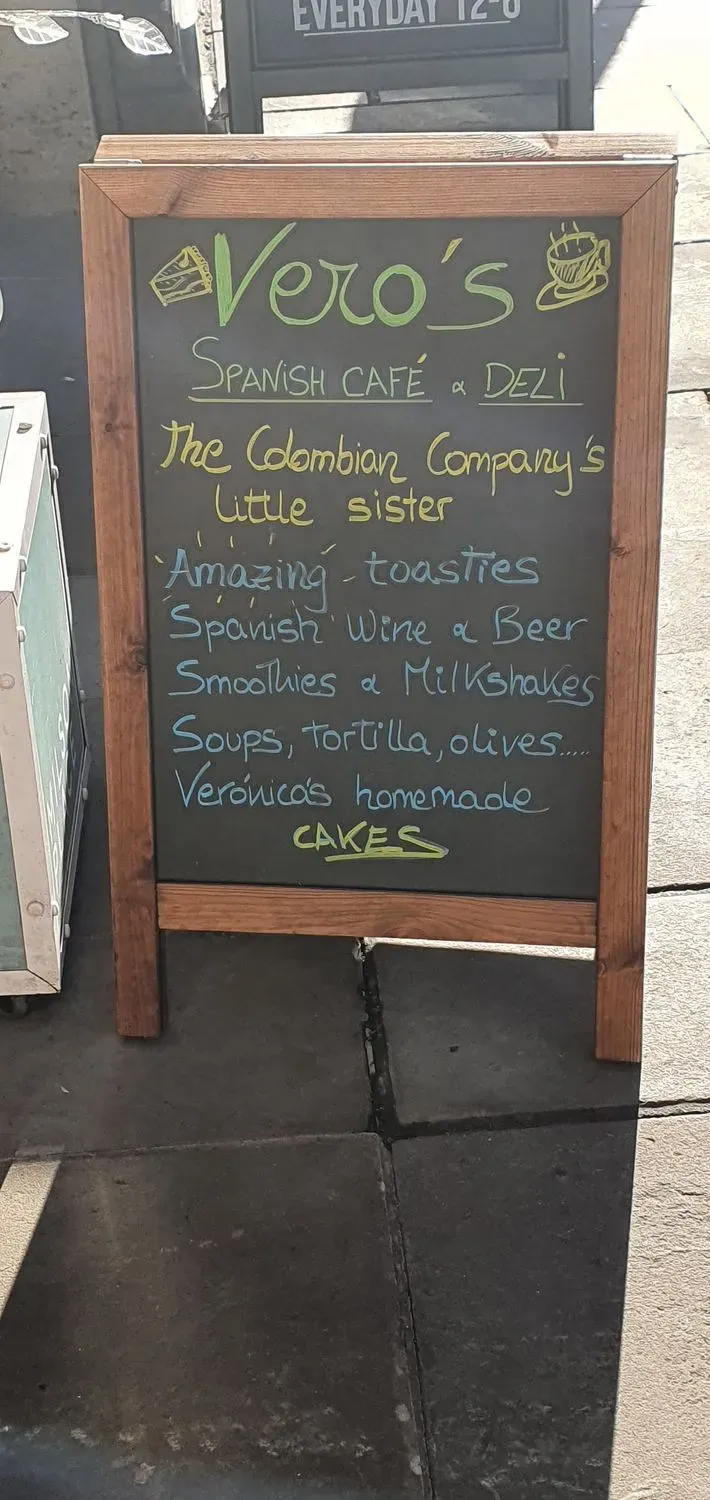 EVERYDAY 12-6
Vero's
SPANISH CAFÉ & DELI
The Colombian Company's
little sister
Amazing toasties
Spanish Wine & Beer
Smoothies & Milkshakes
Soups, tortilla, olives.....
Verónica's homemade
CAKES